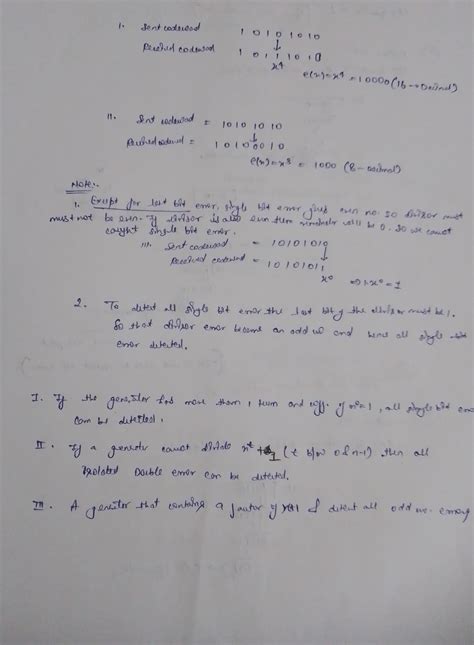 I. Sent codeword 1 0 1 0 1 0 1 0
Received codeword 1 0 1 1 1 0 1 0
x⁴ e(x)=x⁴ = 10000 (16→Decimal)
II. Sent codeword = 1010 1010
Received = 1 0 1 0 0 0 1 0
e(x)=x³ = 1000 (8-decimal)
Note:-
1. Except for last bit error, single bit error gives even no. so divisor must
must not be even. If divisor is also even then remainder will be 0. So we cannot
caught single bit error.
III. Sent codeword = 10101010
Received codeword = 10101011
x⁰ ⇒ x⁰ = 1
2. To detect all single bit error the last bit of the divisor must be 1.
So that divisor error become an odd no and hence all single bit
error detected.
I. If the generator has more than 1 term and coeff. of x⁰=1, all single bit
can be detected.
II. If a generator cannot divide xᵗ+1 (t b/w 0 & n-1) then all
Isolated Double error can be detected.
III. A generator that contains a factor of detect all odd